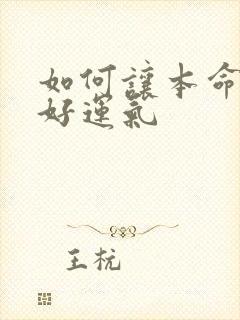 如何讓本命
好運氣
王杬